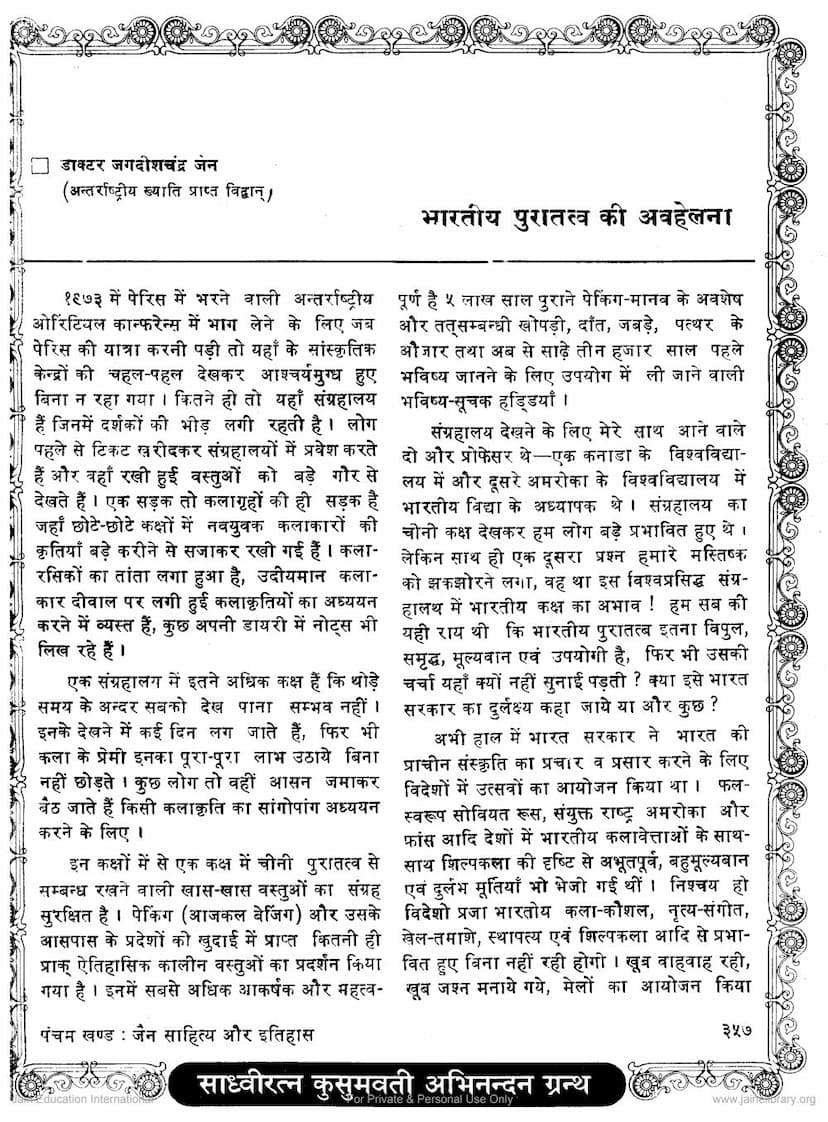 डाक्टर जगदीशचंद्र जैन
(अन्तर्राष्ट्रीय ख्याति प्राप्त विद्वान्)
भारतीय पुरातत्व की अवहेलना
१९७३ में पेरिस में भरने वाली अन्तर्राष्ट्रीय
ओरिंटियल कान्फरेन्स में भाग लेने के लिए जब
पेरिस की यात्रा करनी पड़ी तो यहाँ के सांस्कृतिक
केन्द्रों की चहल-पहल देखकर आश्चर्यमुग्ध हुए
बिना न रहा गया । कितने ही तो यहाँ संग्रहालय
हैं जिनमें दर्शकों की भीड़ लगी रहती है । लोग
पहले से टिकट खरीदकर संग्रहालयों में प्रवेश करते
हैं और वहाँ रखी हुई वस्तुओं को बड़े गौर से
देखते हैं । एक सड़क तो कलागृहों की ही सड़क है
जहाँ छोटे-छोटे कक्षों में नवयुवक कलाकारों की
कृतियाँ बड़े करीने से सजाकर रखी गई हैं । कला-
रसिकों का तांता लगा हुआ है, उदीयमान कला-
कार दीवाल पर लगी हुई कलाकृतियों का अध्ययन
करने में व्यस्त हैं, कुछ अपनी डायरी में नोट्स भी
लिख रहे हैं ।
एक संग्रहालय में इतने अधिक कक्ष हैं कि थोड़े
समय के अन्दर सबको देख पाना सम्भव नहीं ।
इनके देखने में कई दिन लग जाते हैं, फिर भी
कला के प्रेमी इनका पूरा-पूरा लाभ उठाये बिना
नहीं छोड़ते । कुछ लोग तो वहीं आसन जमाकर
बैठ जाते हैं किसी कलाकृति का सांगोपांग अध्ययन
करने के लिए ।
इन कक्षों में से एक कक्ष में चीनी पुरातत्व से
सम्बन्ध रखने वाली खास-खास वस्तुओं का संग्रह
सुरक्षित है । पेकिंग (आजकल बेजिंग) और उसके
आसपास के प्रदेशों की खुदाई में प्राप्त कितनी ही
प्राक् ऐतिहासिक कालीन वस्तुओं का प्रदर्शन किया
गया है । इनमें सबसे अधिक आकर्षक और महत्व-
पूर्ण है ५ लाख साल पुराने पेकिंग-मानव के अवशेष
और तत्सम्बन्धी खोपड़ी, दाँत, जबड़े, पत्थर के
औजार तथा अब से साढ़े तीन हजार साल पहले
भविष्य जानने के लिए उपयोग में ली जाने वाली
भविष्य-सूचक हड्डियाँ ।
संग्रहालय देखने के लिए मेरे साथ आने वाले
दो और प्रोफेसर थे—एक कनाडा के विश्वविद्या-
लय में और दूसरे अमरीका के विश्वविद्यालय में
भारतीय विद्या के अध्यापक थे । संग्रहालय का
चीनी कक्ष देखकर हम लोग बड़े प्रभावित हुए थे ।
लेकिन साथ ही एक दूसरा प्रश्न हमारे मस्तिष्क
को झकझोरने लगा, वह था इस विश्वप्रसिद्ध संग्र-
हालय में भारतीय कक्ष का अभाव ! हम सब की
यही राय थी कि भारतीय पुरातत्व इतना विपुल,
समृद्ध, मूल्यवान एवं उपयोगी है, फिर भी उसकी
चर्चा यहाँ क्यों नहीं सुनाई पड़ती ? क्या इसे भारत
सरकार का दुर्लक्ष्य कहा जाये या और कुछ ?
अभी हाल में भारत सरकार ने भारत की
प्राचीन संस्कृति का प्रचार व प्रसार करने के लिए
विदेशों में उत्सवों का आयोजन किया था । फल-
स्वरूप सोवियत रूस, संयुक्त राष्ट्र अमरीका और
फ्रांस आदि देशों में भारतीय कलावेत्ताओं के साथ-
साथ शिल्पकला की दृष्टि से अभूतपूर्व, बहुमूल्यवान
एवं दुर्लभ मूर्तियाँ भी भेजी गई थीं । निश्चय ही
विदेशी प्रजा भारतीय कला-कौशल, नृत्य-संगीत,
खेल-तमाशे, स्थापत्य एवं शिल्पकला आदि से प्रभा-
वित हुए बिना नहीं रही होगी । खूब वाहवाह रही,
खूब जश्न मनाये गये, मेलों का आयोजन किया
पंचम खण्ड : जैन साहित्य और इतिहास
३५७
साध्वीरत्न कुसुमवती अभिनन्दन ग्रन्थ
Jain Education International
For Private & Personal Use Only
www.jainelibrary.org